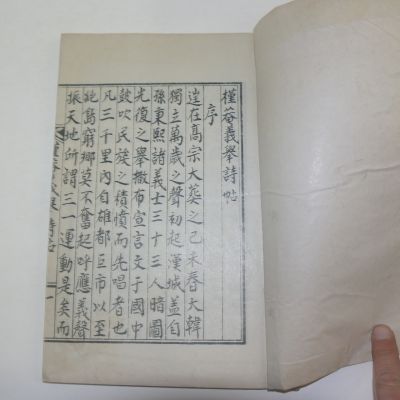 槿菴義擧詩帖
序
逞在高宗大葬之己未春大韓
獨立萬歲之聲初起漢城盖自
孫秉熙諸義士三十三人暗圖
光復之擧撒布宣言文于國中
鼓吹民族之積憤而先唱者也
凡三千里內自雄都巨市以至
絶島窮鄕莫不奮起呼應義聲
振天地所謂三一運動是矣而